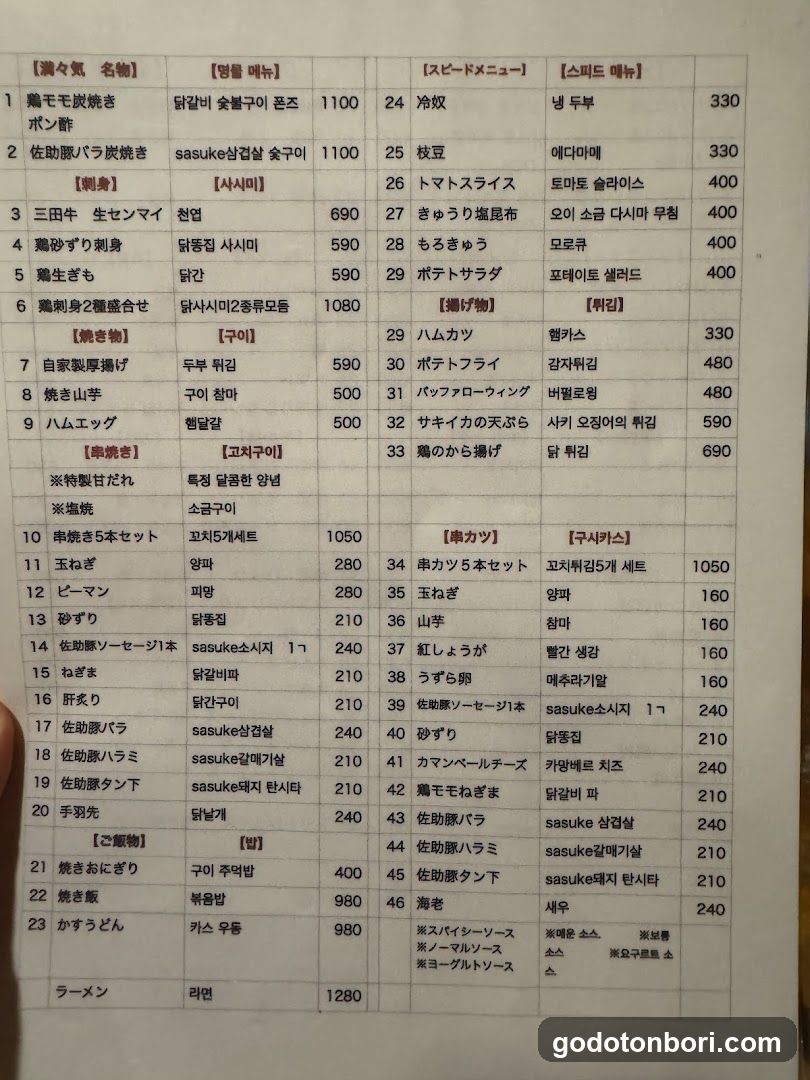 【満々気 名物】 【명물 메뉴】
1 鶏モモ炭焼き 닭갈비 숯불구이 폰즈 1100
ポン酢
2 佐助豚バラ炭焼き sasuke삼겹살 숯구이 1100
【刺身】 【사시미】
3 三田牛 生センマイ 천엽 690
4 鶏砂ずり刺身 닭똥집 사시미 590
5 鶏生ぎも 닭간 590
6 鶏刺身2種盛合せ 닭사시미2종류모둠 1080
【焼き物】 【구이】
7 自家製厚揚げ 두부 튀김 590
8 焼き山芋 구이 참마 500
9 ハムエッグ 햄달걀 500
【串焼き】 【고치구이】
※特製甘だれ 특정 달콤한 양념
※塩焼 소금구이
10 串焼き5本セット 꼬치5개세트 1050
11 玉ねぎ 양파 280
12 ピーマン 피망 280
13 砂ずり 닭똥집 210
14 佐助豚ソーセージ1本 sasuke소시지 1ㄱ 240
15 ねぎま 닭갈비파 210
16 肝炙り 닭간구이 210
17 佐助豚バラ sasuke삼겹살 240
18 佐助豚ハラミ sasuke갈매기살 210
19 佐助豚タン下 sasuke돼지 탄시타 210
20 手羽先 닭날개 240
【ご飯物】 【밥】
21 焼きおにぎり 구이 주먹밥 400
22 焼き飯 볶음밥 980
23 かすうどん 카스 우동 980
ラーメン 라면 1280
【スピードメニュー】 【스피드 메뉴】
24 冷奴 냉 두부 330
25 枝豆 에다마메 330
26 トマトスライス 토마토 슬라이스 400
27 きゅうり塩昆布 오이 소금 다시마 무침 400
28 もろきゅう 모로큐 400
29 ポテトサラダ 포테이토 샐러드 400
【揚げ物】 【튀김】
29 ハムカツ 햄카스 330
30 ポテトフライ 감자튀김 480
31 バッファローウィング 버펄로윙 480
32 サキイカの天ぷら 사키 오징어의 튀김 590
33 鶏のから揚げ 닭 튀김 690
【串カツ】 【구시카스】
34 串カツ5本セット 꼬치튀김5개 세트 1050
35 玉ねぎ 양파 160
36 山芋 참마 160
37 紅しょうが 빨간 생강 160
38 うずら卵 메추라기알 160
39 佐助豚ソーセージ1本 sasuke소시지 1ㄱ 240
40 砂ずり 닭똥집 210
41 カマンベールチーズ 카망베르 치즈 240
42 鶏モモねぎま 닭갈비 파 210
43 佐助豚バラ sasuke 삼겹살 240
44 佐助豚ハラミ sasuke갈매기살 210
45 佐助豚タン下 sasuke돼지 탄시타 210
46 海老 새우 240
※スパイシーソース ※매운 소스 ※보통
※ノーマルソース 소스 ※요구르트 소
※ヨーグルトソース 스
godotonbori.com